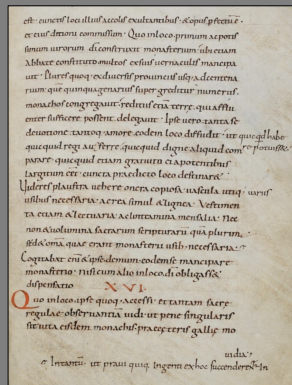 est. cunctis loci illius accolis exultantibus. & opus perfectum
et eius dicioni commissum. Quo in loco. primum ac potis
simum virorum. di construxit monasterium. ubi etiam
abbate constituto. multos ex suis vernaculis mancipa
vit. Plures quoq. ex diversis provinciis usq. ad centena
rum. que quinquagenarius super greditur numerus.
monachos congregavit. reditus etiā terre. qui affluen
enter sufficere possent. delegavit. Ipse vero. tanta se
devotione. tantoq. amore. eodem loco diffudit. ut quicqd habe
quicquid regi aū ferre. quicquid digne aliquid com re potuisse
parare. quicquid etiam gratuito et a potentibus
largitum est. cuncta predicto loco destinare.
Videres plaustra vehere onera copiosa. vascula utiq. varus
usibus necessaria. aerea simul & lignea. Vestimen
ta etiam & lectuaria. ac lintamina mensalia. Nec
non & volumina sacrarum scripturarū quā plurim.
sed & omā. que erant monasterii usib. necessaria.
Cogitabat enī & ipse demum. eodem se mancipare
monasterio. ni se cum alio in loco. di obligasset
dispensatio. XVI.
Quo in loco. ipse quoq. accessi. et tantam sacre
regulae observantiā vidi. ut pene singularis
sit vita eisdem monachis. preceteris gallie mo
vidia.
Intantū. ut pravi quiq. ingenti ex hoc succenderer In